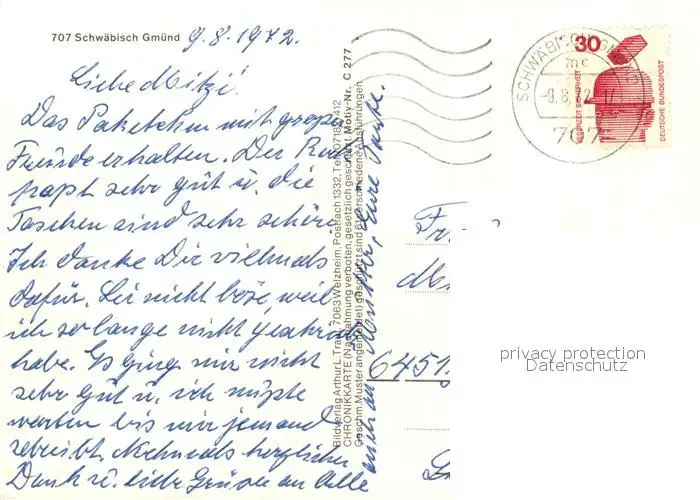 707 Schwäbisch Gmünd 9.8.1972.
Liebe Mitzi!
Das Paketchen mit großer
Freude erhalten. Der Rock
papt sehr gut u. die
Taschen sind sehr schön
Ich danke Dir vielmals
dafür. Sei nicht böse, weil
ich so lange nicht geschrieb
habe. Es ging mir nicht
sehr gut u. ich mußte
warten bis mir jemand
schreibt. Nochmals herzlichen
Dank u. liebe Grüße an Alle
auch an Mutter, Eure Tante.
Bildverlag Arthur L. Traub, 7063 Welzheim, Postfach 1332, Tel. 07182/412
CHRONIKKARTE (Nachahmung verboten, gesetzlich geschützt) Motiv-Nr. C 277
Geschm. Muster angemeldet) geschützt sind 6 verschiedene Ausführungen
SCHWÄBISCH GMÜND
mc
-9.8.72-17
707
30
JEDERZEIT SICHERHEIT
DEUTSCHE BUNDESPOST
Fr
6451
privacy protection
Datenschutz